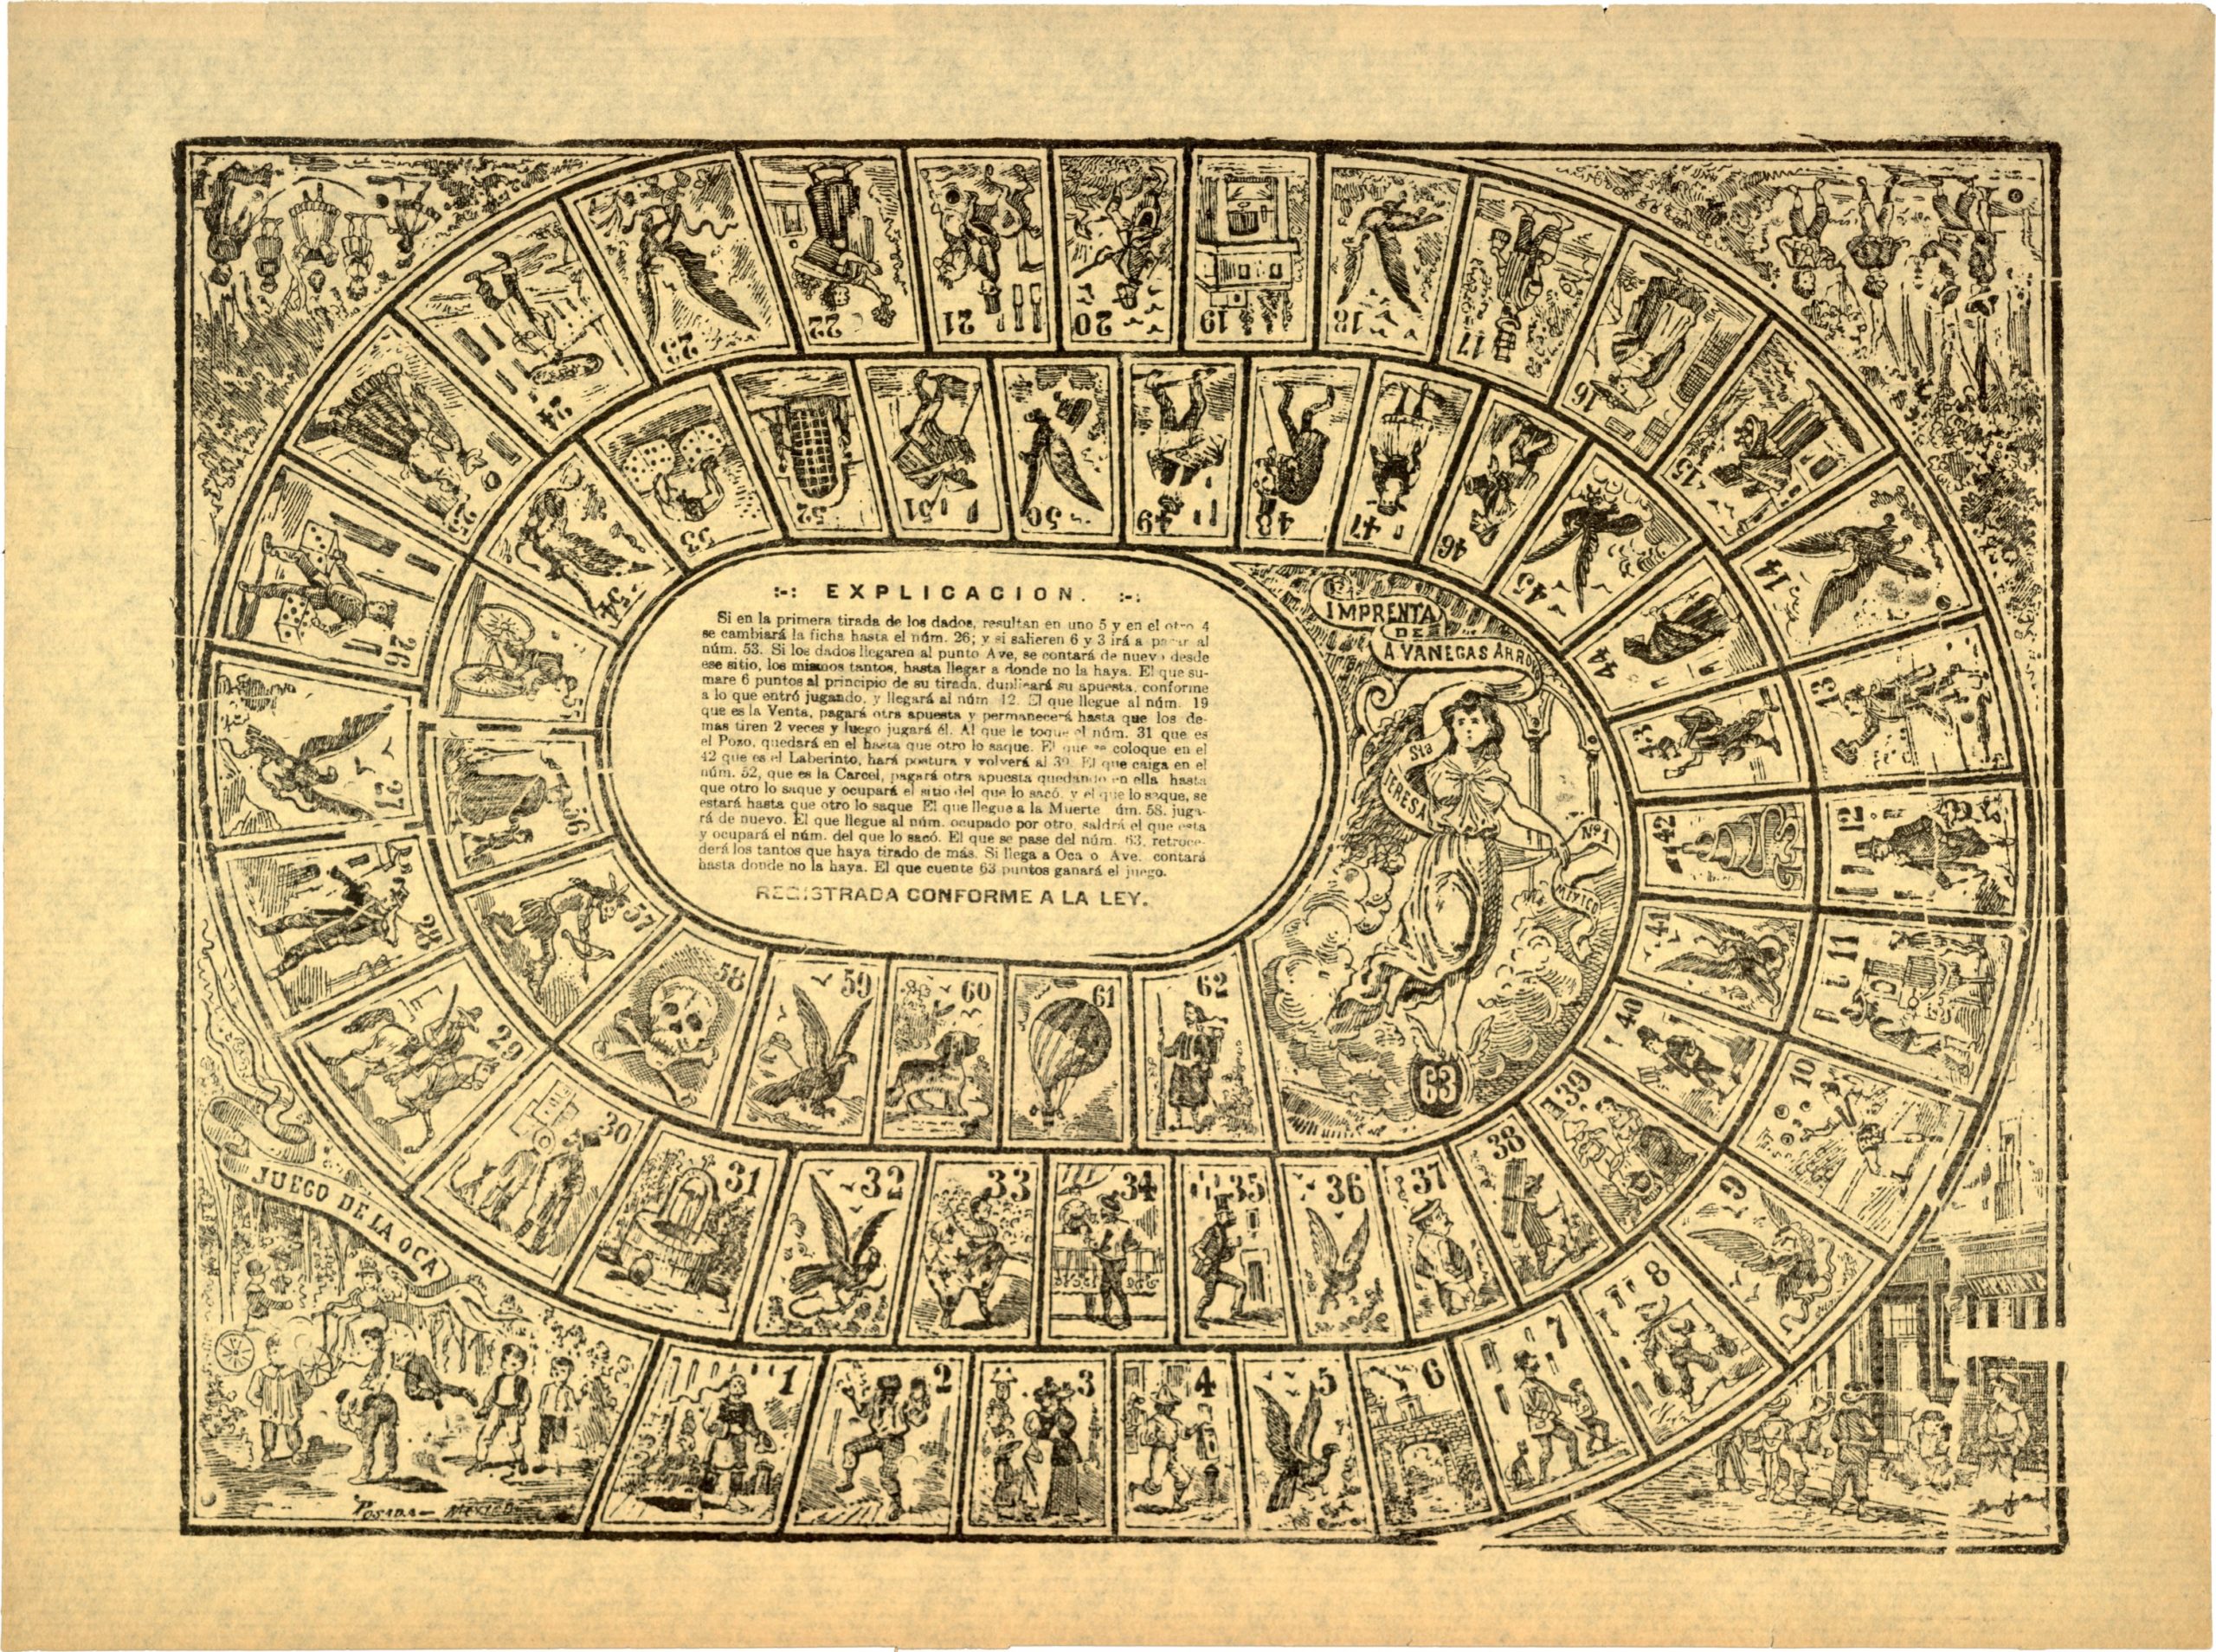 :-: EXPLICACION. :-:
Si en la primera tirada de los dados, resultan en uno 5 y en el otro 4
se cambiará la ficha hasta el núm. 26; y si salieren 6 y 3 irá a parar al
núm. 53. Si los dados llegaren al punto Ave, se contará de nuevo desde
ese sitio, los mismos tantos, hasta llegar a donde no la haya. El que su-
mare 6 puntos al principio de su tirada, duplicará su apuesta, conforme
a lo que entró jugando, y llegará al núm 12. El que llegue al núm. 19
que es la Venta, pagará otra apuesta y permanecerá hasta que los de-
mas tiren 2 veces y luego jugará él. Al que le toque el núm. 31 que es
el Pozo, quedará en el hasta que otro lo saque. El que se coloque en el
42 que es el Laberinto, hará postura y volverá al 39. El que caiga en el
núm. 52, que es la Carcel, pagará otra apuesta quedando en ella hasta
que otro lo saque y ocupará el sitio del que lo sacó, y el que lo saque, se
estará hasta que otro lo saque El que llegue a la Muerte úm. 58. juga-
rá de nuevo. El que llegue al núm. ocupado por otro, saldrá el que esta
y ocupará el núm. del que lo sacó. El que se pase del núm. 63, retroce-
derá los tantos que haya tirado de más. Si llega a Oca o Ave. contará
hasta donde no la haya. El que cuente 63 puntos ganará el juego.
REGISTRADA CONFORME A LA LEY.
IMPRENTA
DE
A VANEGAS ARROYO
Sta
TERESA
Nº 1
MEXICO
JUEGO DE LA OCA
POSADA - MEXICO
1
2
3
4
5
6
7
8
9
10
11
12
13
14
15
16
17
18
19
20
21
22
23
24
25
26
27
28
29
30
31
32
33
34
35
36
37
38
39
40
41
42
43
44
45
46
47
48
49
50
51
52
53
54
56
57
58
59
60
61
62
63